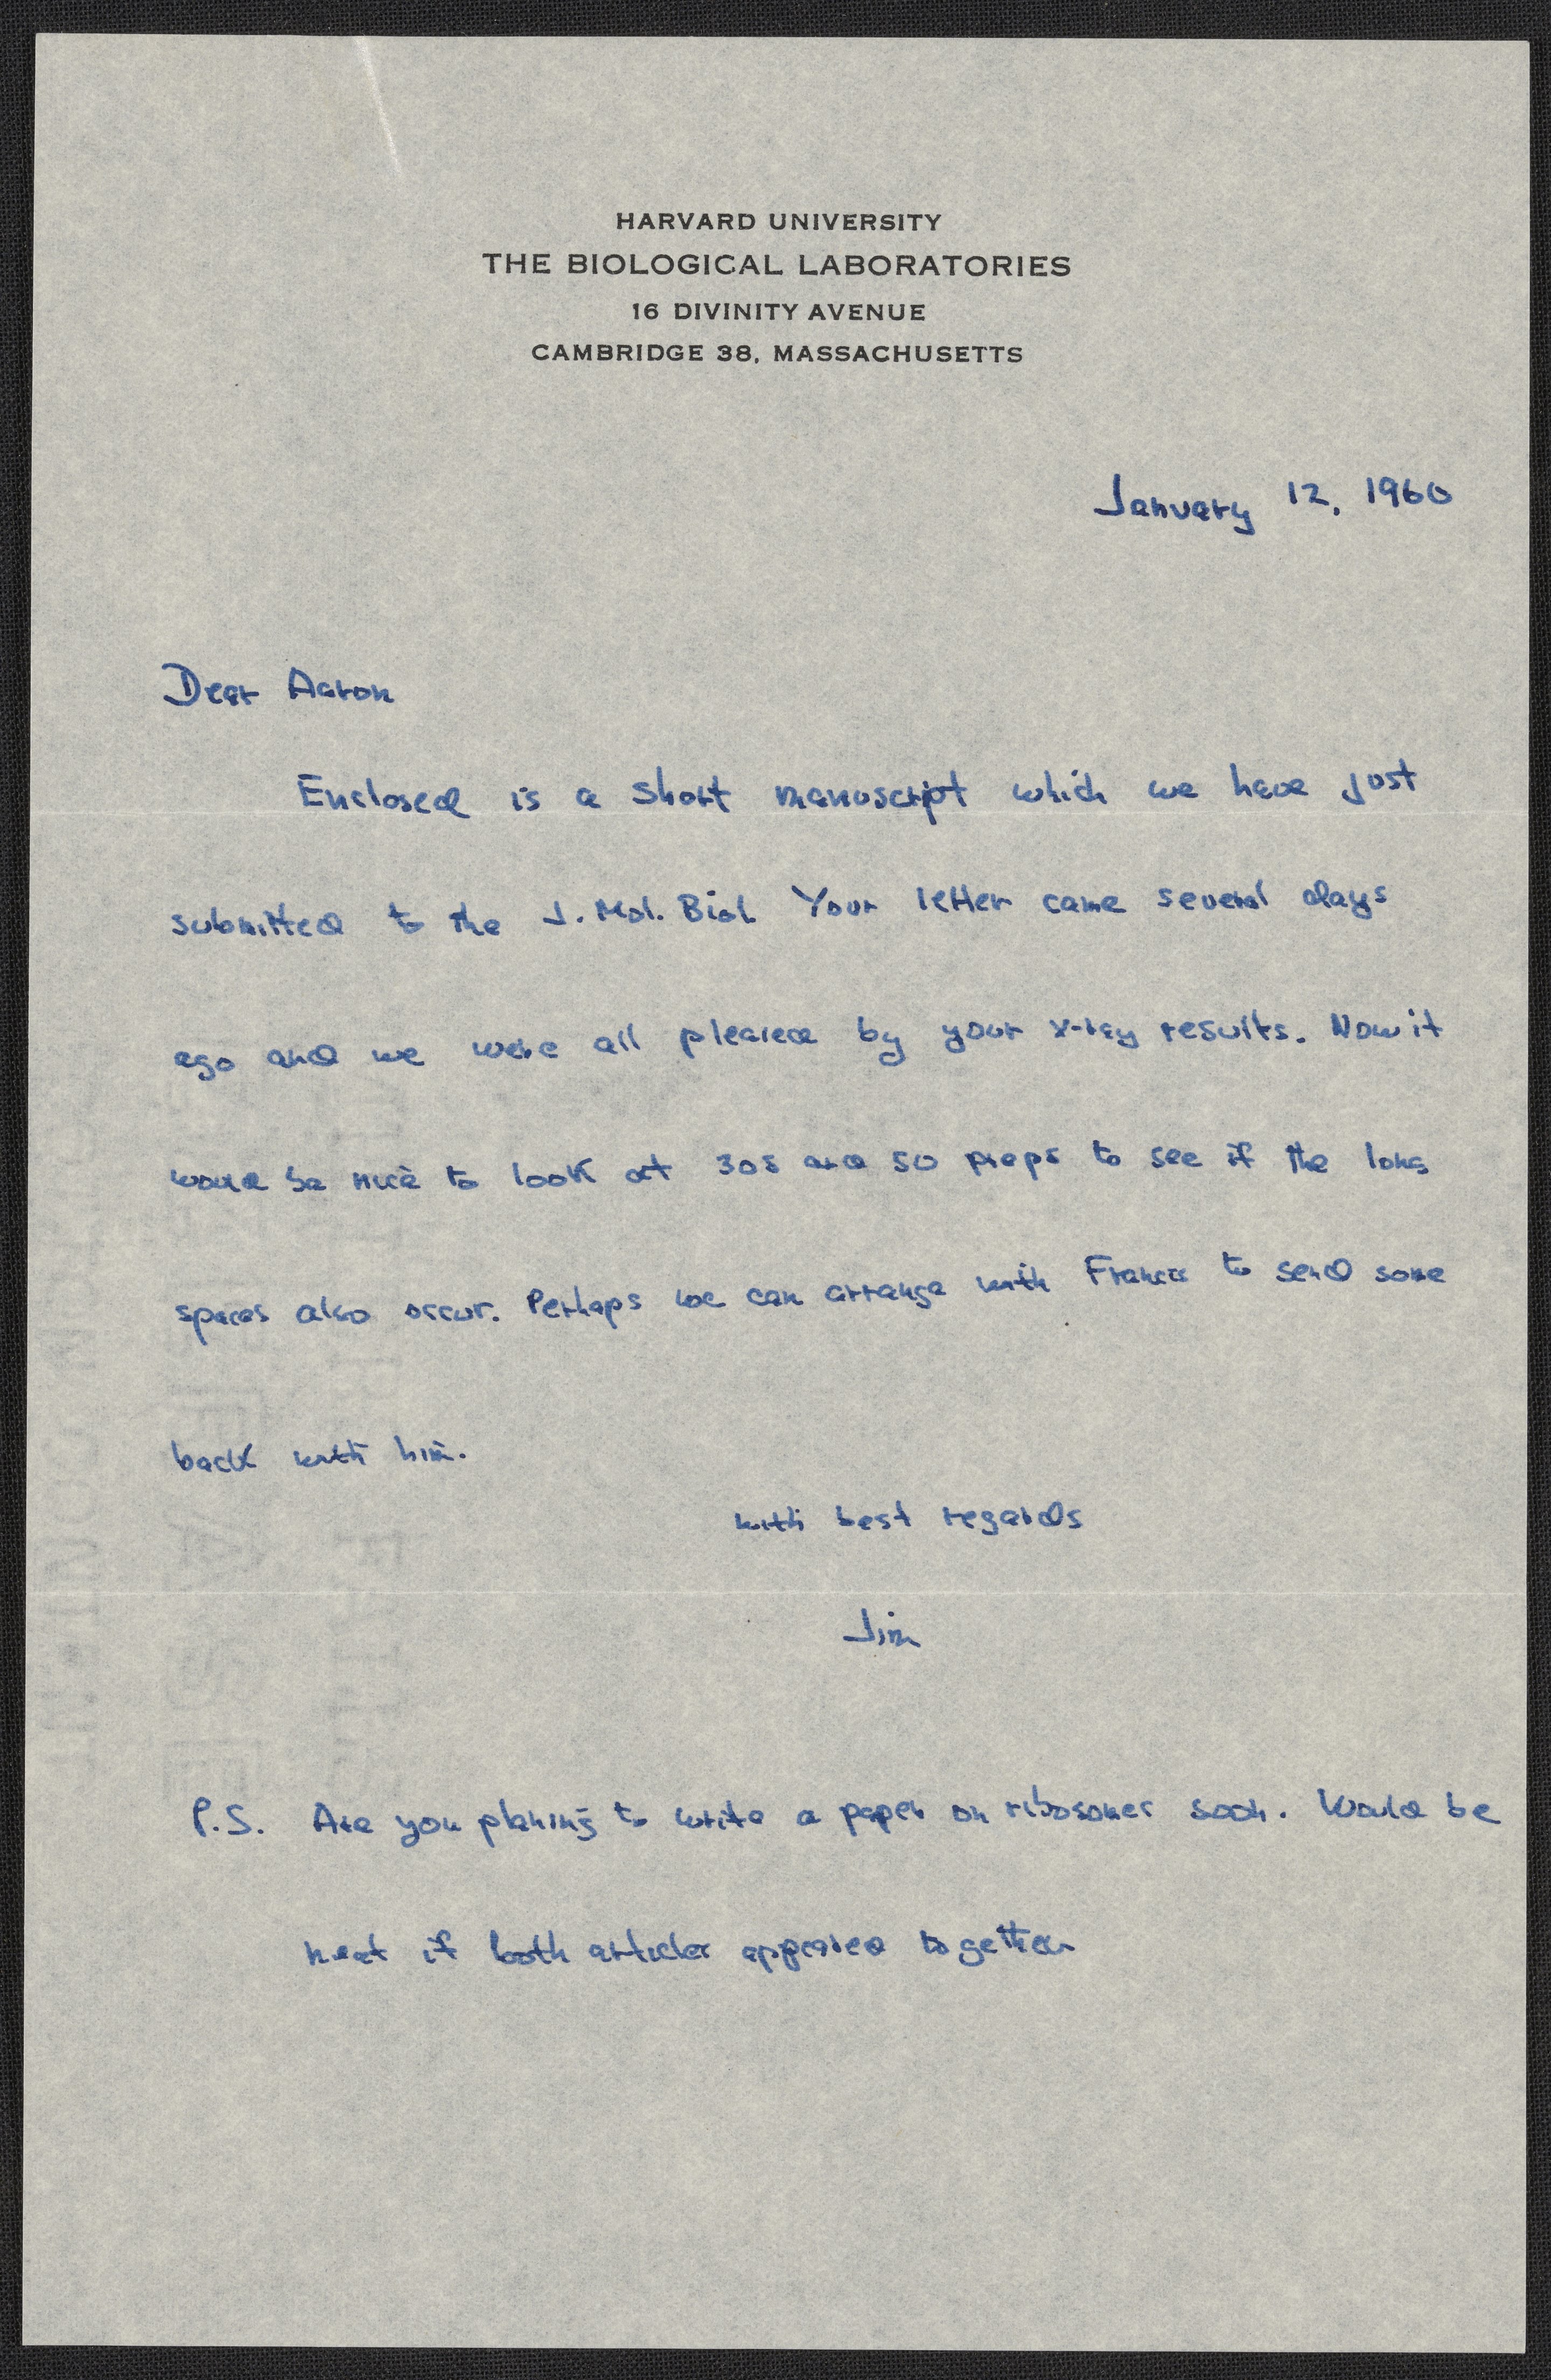 HARVARD UNIVERSITY
THE BIOLOGICAL LABORATORIES
16 DIVINITY AVENUE
CAMBRIDGE 38, MASSACHUSETTS
January 12, 1960
Dear Aaron
Enclosed is a short manuscript which we have just
submitted to the J. Mol. Biol. Your letter came several days
ago and we were all pleased by your x-ray results. Now it
would be nice to look at 30s and 50 preps to see if the long
spaces also occur. Perhaps we can arrange with Francis to send some
back with him.
with best regards
Jim
P.S. Are you planing to write a paper on ribosomes soon. Would be
neat if both articles appeared together